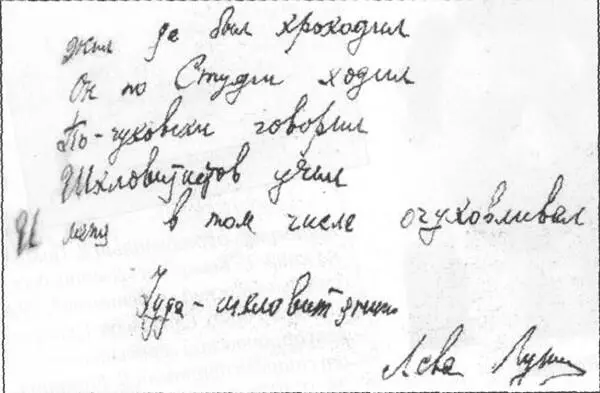 Жил да был крокодил
Он по Студии ходил
По-чуковски говорил
Шкловитистов учил
И меня в том числе очуковливал
Худо-шкловит
Лева Лунц